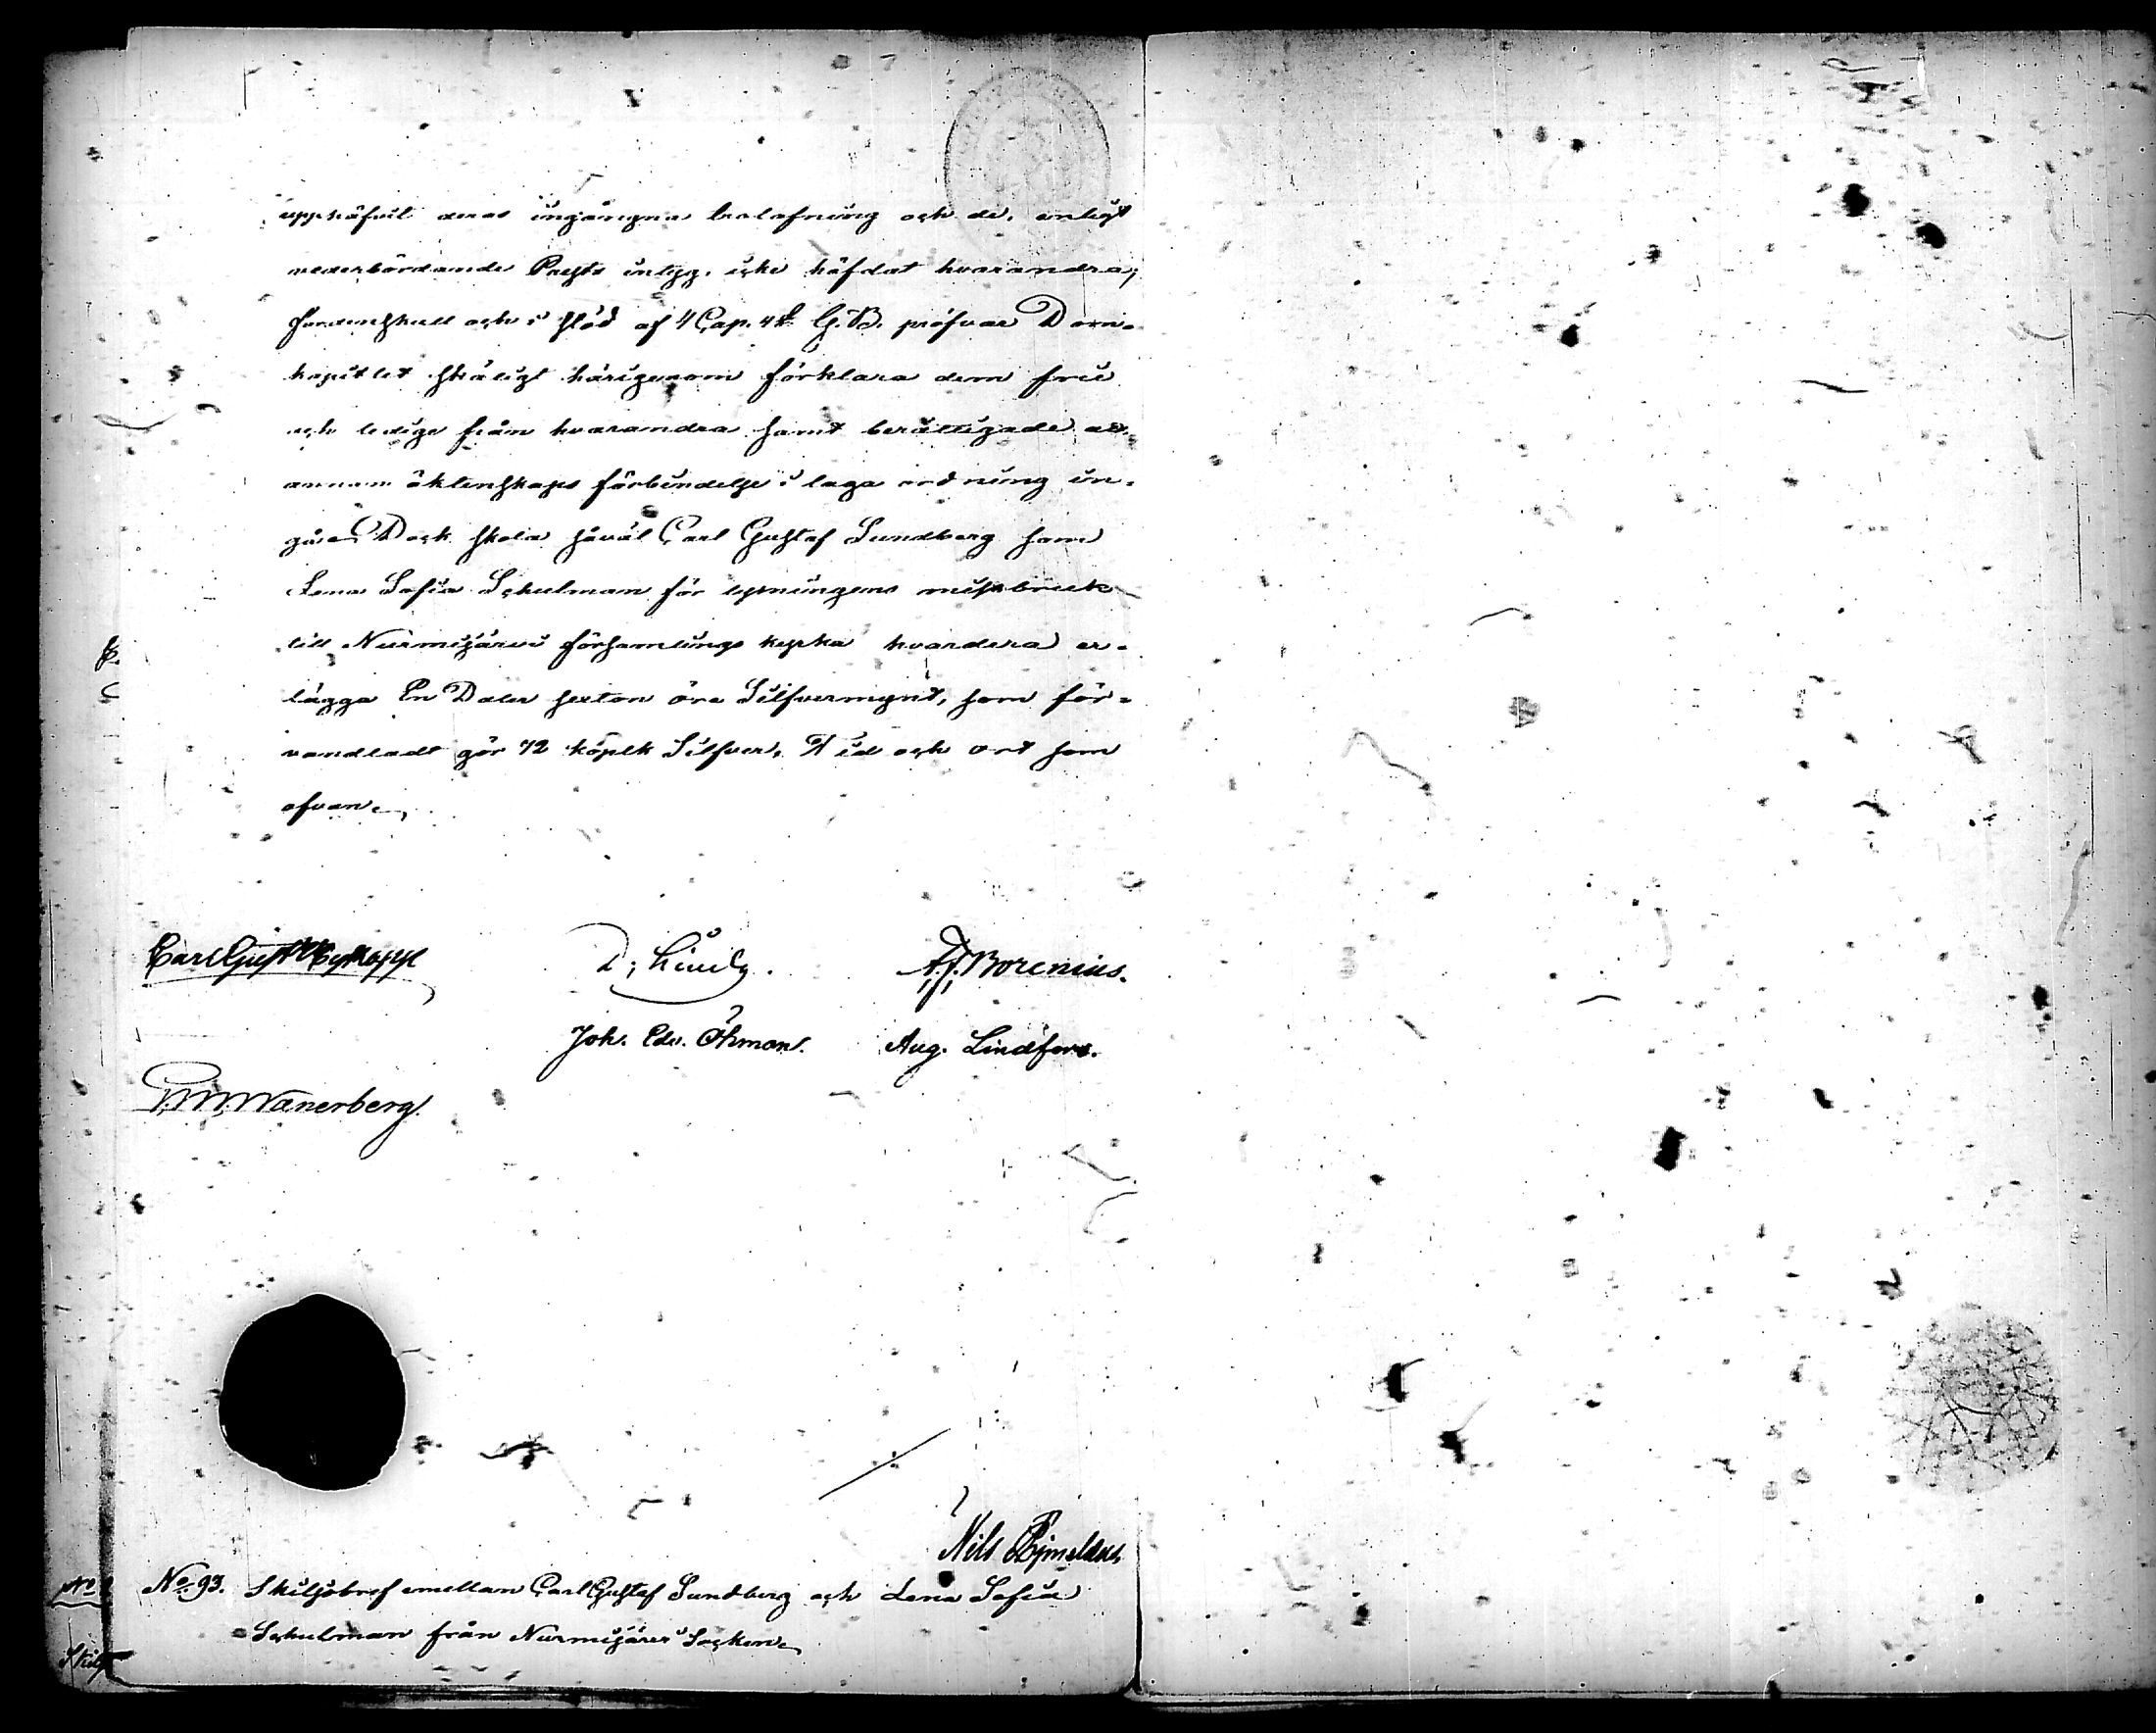 upphäfvit deras ingångna trolofning och de, enligt
vederbörande Prests intyg, icke häfdat hvarandra;
fördenskull och i stöd af 4 Cap. 4 §. G. B. pröfvar Dom-
kapitlet skäligt härigenom förklara dem frie
och ledige från hvarandra samt berättigade att
annan äktenskaps förbindelse i laga ordning in-
gå. Dock skola såväl Carl Gustaf Sundberg som
Lena Sofia Schulman för lysningens missbruk
till Nurmijärvi församlings kyrka hvardera er-
lägga En Daler sexton öre Silfvermynt, som för-
vandladt gör 72 kopek Silfver. Tid och ort som
ofvan.
Carl Gust
A. F. Borenius.
Joh. Edv. Öhman. Aug. Lindfors.
Wænerberg.
Nils
No. 93. Skiljobref emellan Carl Gustaf Sundberg och Lena Sofia
Schulman från Nurmijärvi Socken.